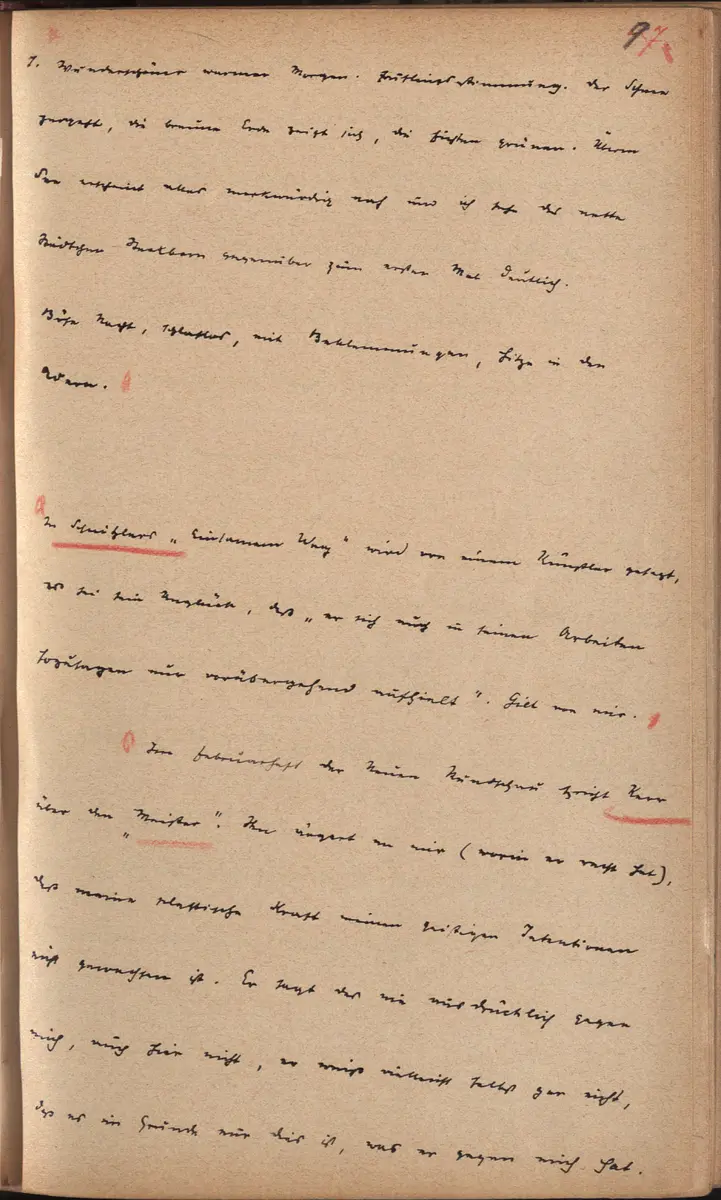 97
7. Wunderschöner warmer Morgen. Frühlingsstimmung. Der Schnee
zergeht, die braune Erde zeigt sich, die Fichten grünen. Überm
See erscheint alles merkwürdig nah und ich sehe das nette
Städtchen gegenüber zum ersten Mal deutlich.
Böse Nacht, schlaflos, mit Beklemmungen, Hitze in den
Adern.
In Schnitzlers „Einsamem Weg“ wird von einem Künstler gesagt,
es sei sein Unglück, daß „er sich auch in seinen Arbeiten
sozusagen nur vorübergehend aufhielt“. Gilt von mir.
Im Februarheft der Neuen Rundschau spricht Kerr
über den „Meister“. Ihn ärgert an mir (worin er recht hat),
daß meine plastische Kraft meinen geistigen Intentionen
nicht gewachsen ist. Er sagt das nie ausdrücklich gegen
mich, auch hier nicht, er weiß vielleicht selbst gar nicht,
daß es im Grunde nur dies ist, was er gegen mich hat.